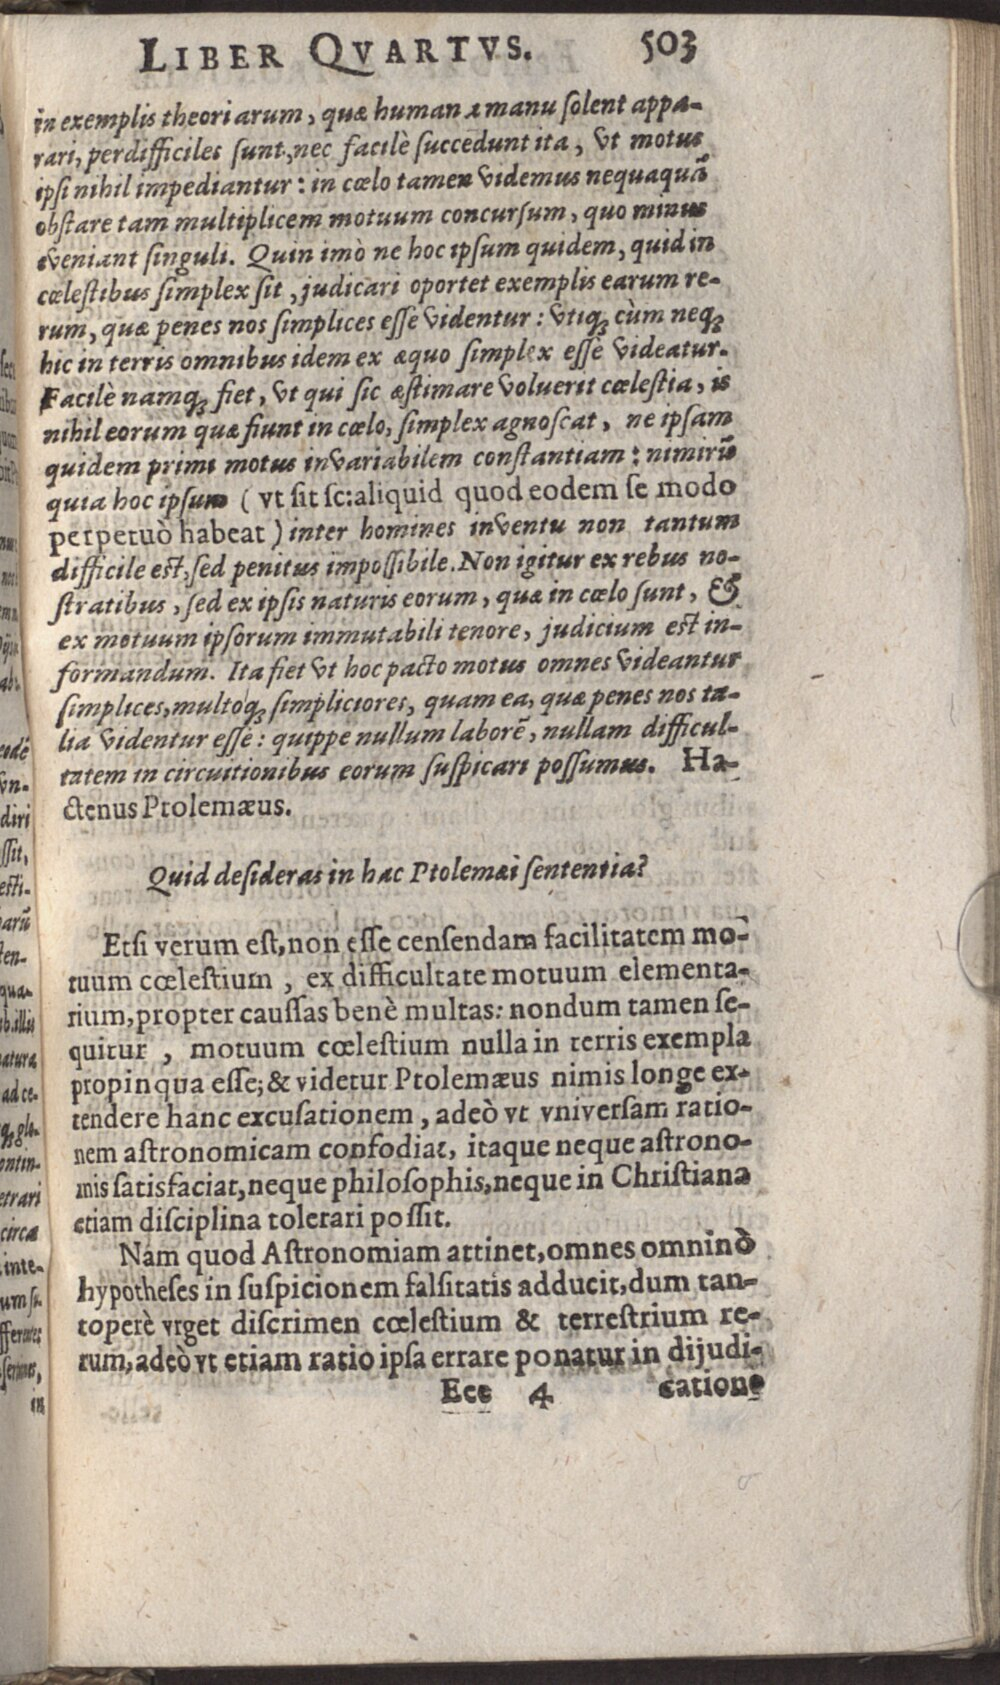 LIBER QVARTVS. 503
in exemplis theoriarum, quæ humanæ manu solent appa-
rari, perdifficiles sunt, nec facilè succedunt ita, vt motus
ipsi nihil impediantur: in cœlo tamen videmus nequaquã
obstare tam multiplicem motuum concursum, quo minus
eveniant singuli. Quin imò ne hoc ipsum quidem, quid in
cœlestibus simplex sit, judicari oportet exemplis earum re-
rum, quæ penes nos simplices esse videntur: vtiq; cùm neq;
hic in terris omnibus idem ex æquo simplex esse videatur.
Facilè namq; fiet, vt qui sic æstimare voluerit cœlestia, is
nihil eorum quæ fiunt in cœlo, simplex agnoscat, ne ipsam
quidem primi motus invariabilem constantiam: nimirũ
quia hoc ipsum (vt sit sc: aliquid quod eodem se modo
perpetuò habeat) inter homines inventu non tantum
difficile est, sed penitus impossibile. Non igitur ex rebus no-
stratibus, sed ex ipsis naturis eorum, quæ in cœlo sunt, &
ex motuum ipsorum immutabili tenore, judicium est in-
formandum. Ita fiet vt hoc pacto motus omnes videantur
simplices, multoq; simpliciores, quam ea, quæ penes nos ta-
lia videntur esse: quippe nullum laborẽ, nullam difficul-
tatem in circuitionibus eorum suspicari possumus. Ha-
ctenus Ptolemæus.
Quid desideras in hac Ptolemæi sententia?
Etsi verum est, non esse censendam facilitatem mo-
tuum cœlestium, ex difficultate motuum elementa-
rium, propter caussas benè multas: nondum tamen se-
quitur, motuum cœlestium nulla in terris exempla
propinqua esse; & videtur Ptolemæus nimis longe ex-
tendere hanc excusationem, adeò vt vniversam ratio-
nem astronomicam confodiat, itaque neque astrono-
mis satisfaciat, neque philosophis, neque in Christiana
etiam disciplina tolerari possit.
Nam quod Astronomiam attinet, omnes omninò
hypotheses in suspicionem falsitatis adducit, dum tan-
toperè vrget discrimen cœlestium & terrestrium re-
rum, adeò vt etiam ratio ipsa errare ponatur in dijudi-
Eee 4 catione